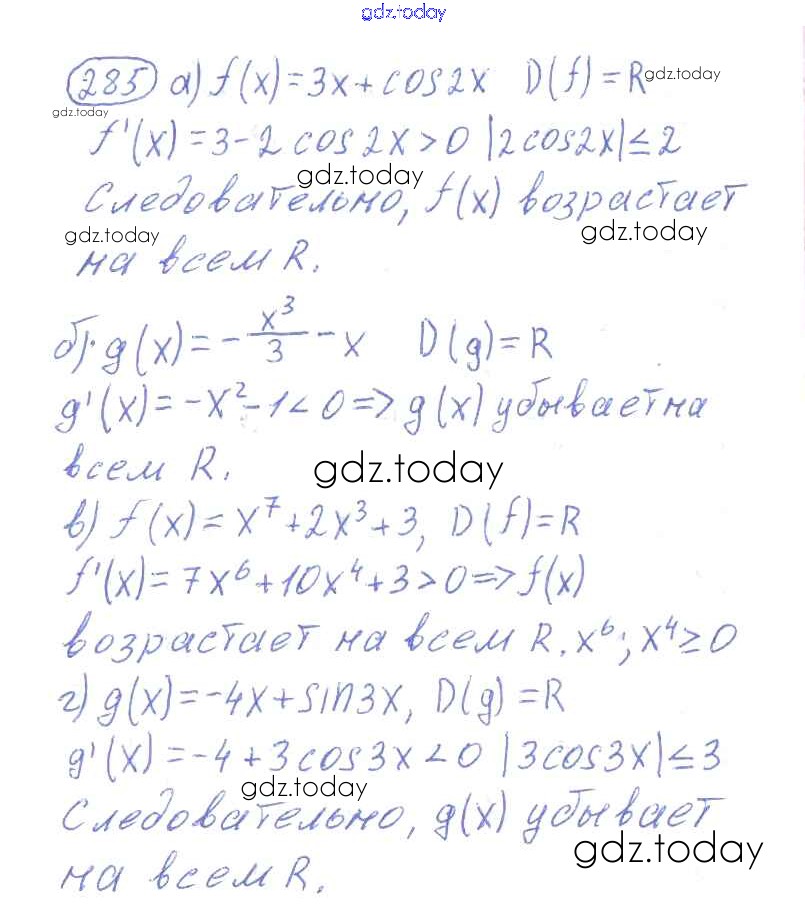 gdz.today
285 а) f(x)=3x+cos2x D(f)=R gdz.today
gdz.today
f'(x)=3-2cos2x>0 |2cos2x|≤2
gdz.today
Следовательно, f(x) возрастает
gdz.today gdz.today
на всем R.
б) g(x)=-x³/3-x D(g)=R
g'(x)=-x²-1<0=>g(x) убывает на
всем R. gdz.today
в) f(x)=x⁷+2x³+3, D(f)=R
f'(x)=7x⁶+10x⁴+3>0=>f(x)
возрастает на всем R. x⁶; x⁴≥0
г) g(x)=-4x+sin3x, D(g)=R
g'(x)=-4+3cos3x<0 |3cos3x|≤3
gdz.today
Следовательно, g(x) убывает
gdz.today
на всем R.